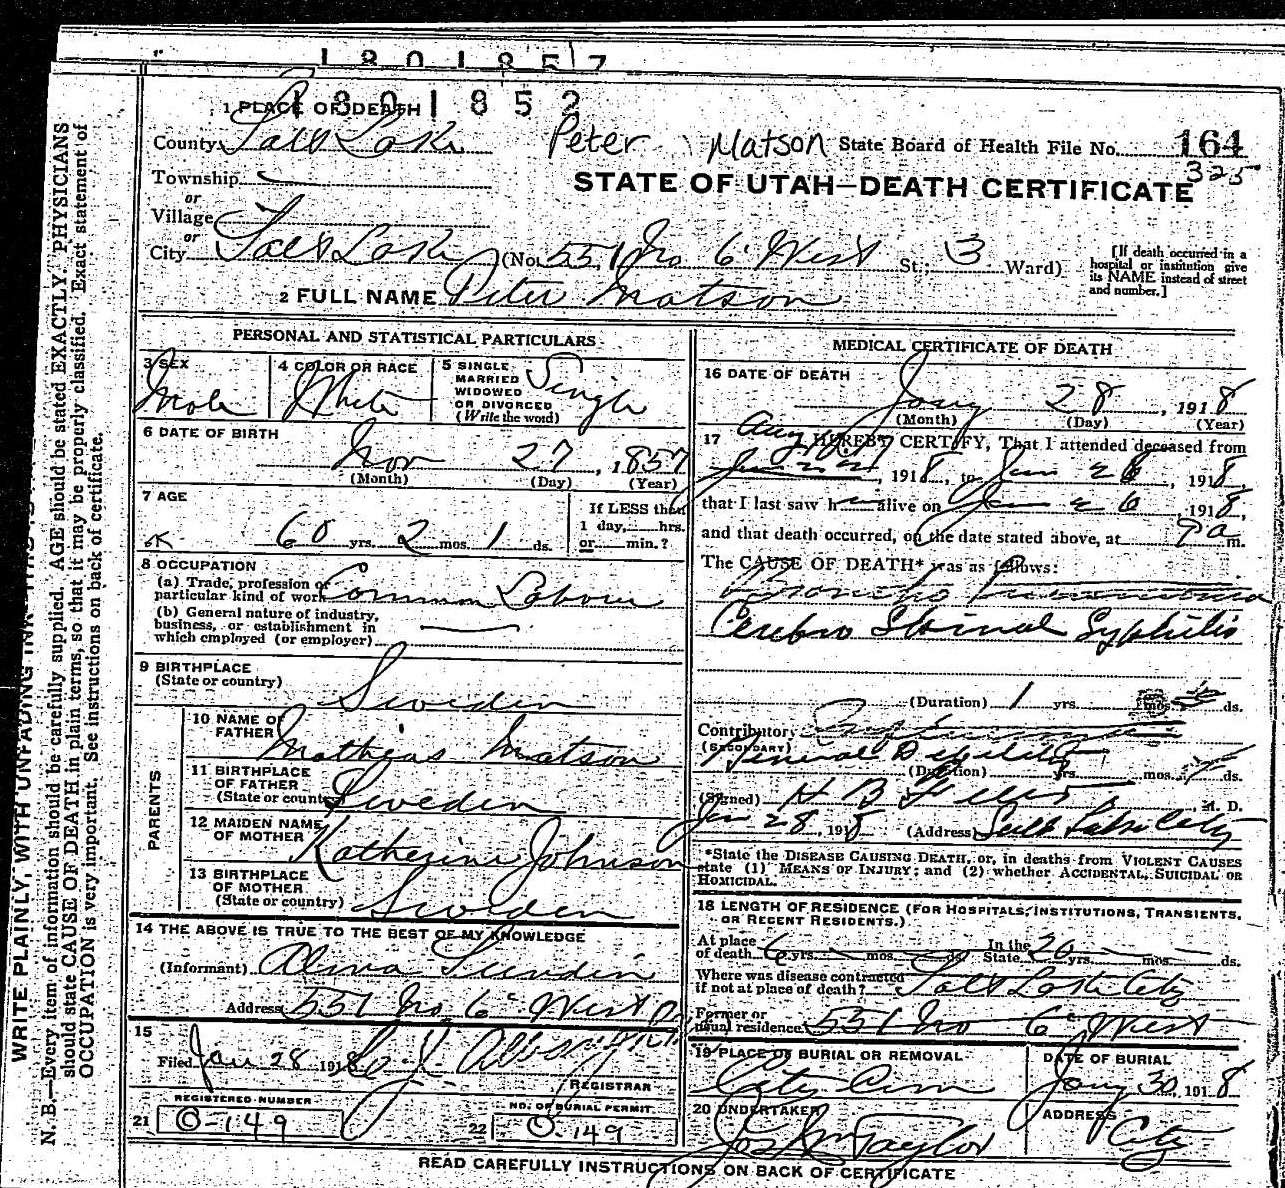 1801857
1801852
1 PLACE OF DEATH
County Salt Lake Peter Matson State Board of Health File No. 164
325
Township
or
STATE OF UTAH—DEATH CERTIFICATE
Village
or
City Salt Lake (No. 551 No 6 West St.; 3 Ward)
[If death occurred in a
hospital or institution give
its NAME instead of street
and number.]
2 FULL NAME Peter Matson
PERSONAL AND STATISTICAL PARTICULARS
3 SEX
Male
4 COLOR OR RACE
White
5 SINGLE
MARRIED
WIDOWED
OR DIVORCED
(Write the word)
Single
6 DATE OF BIRTH
Nov 27, 1857
(Month) (Day) (Year)
7 AGE
60 yrs. 2 mos. 1 ds.
If LESS than
1 day, hrs.
or min.?
8 OCCUPATION
(a) Trade, profession or
particular kind of work Common Labour
(b) General nature of industry,
business, or establishment in
which employed (or employer)
9 BIRTHPLACE
(State or country)
Sweden
PARENTS
10 NAME OF
FATHER
Mathias Matson
11 BIRTHPLACE
OF FATHER
(State or country) Sweden
12 MAIDEN NAME
OF MOTHER
Katherine Johnson
13 BIRTHPLACE
OF MOTHER
(State or country) Sweden
14 THE ABOVE IS TRUE TO THE BEST OF MY KNOWLEDGE
(Informant)
Address 551 No 6 West
15
Filed Jan 28 1918
REGISTRAR
REGISTERED NUMBER
21 O-149
NO. OF BURIAL PERMIT.
22 O-149
MEDICAL CERTIFICATE OF DEATH
16 DATE OF DEATH
Jany 28, 1918
(Month) (Day) (Year)
17 I HEREBY CERTIFY, That I attended deceased from
Aug
, 1918, to Jan 26, 1918,
that I last saw h alive on Jan 26, 1918,
and that death occurred, on the date stated above, at 9 a m.
The CAUSE OF DEATH* was as follows:
Broncho Pneumonia
Cerebro Spinal Syphilis
(Duration) 1 yrs. mos. ds.
Contributory
(SECONDARY)
General Debility
(Duration) yrs. mos. ds.
(Signed) H B M. D.
Jan 28, 1918 (Address) Salt Lake City
*State the DISEASE CAUSING DEATH, or, in deaths from VIOLENT CAUSES
state (1) MEANS OF INJURY; and (2) whether ACCIDENTAL, SUICIDAL OR
HOMICIDAL.
18 LENGTH OF RESIDENCE (FOR HOSPITALS, INSTITUTIONS, TRANSIENTS,
OR RECENT RESIDENTS.)
At place
of death 6 yrs. mos. ds. In the
State 20 yrs. mos. ds.
Where was disease contracted
if not at place of death? Salt Lake City
Former or
usual residence 551 No 6 West
19 PLACE OF BURIAL OR REMOVAL
City Cem
DATE OF BURIAL
Jany 30, 1918
20 UNDERTAKER
Jos Wm Taylor
ADDRESS
City
READ CAREFULLY INSTRUCTIONS ON BACK OF CERTIFICATE
WRITE PLAINLY, WITH UNFADING INK
N. B.—Every item of information should be carefully supplied. AGE should be stated EXACTLY. PHYSICIANS
should state CAUSE OF DEATH in plain terms, so that it may be properly classified. Exact statement of
OCCUPATION is very important. See instructions on back of certificate.